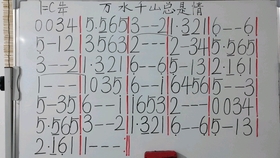 1=C 4/4 万水千山总是情
0034 | 5.565 | 3--2 | 1.321 | 6--6 |
5-12 | 3563 | 2--- | 2-34 | 5.565 |
3--2 | 1.321 | 6--6 | 5-13 | 2.161 |
1--- | 1035 | 1--6 | 6456 | 5--3 |
5-35 | 6--1 | 6563 | 2--- | 0034 |
5.565 | 3--2 | 1.321 | 6--6 | 5-13 |
2.161 | 1--- |